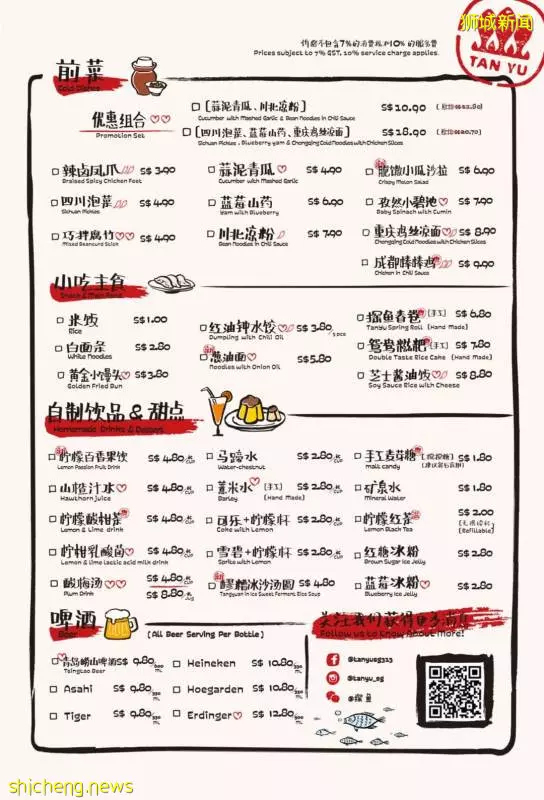 狮城新闻
TAN YU
价格不包含7%的消费税和10%的服务费
Prices subject to 7% GST, 10% service charge applies.
前菜
Cold Dishes
优惠组合
Promotion Set
[蒜泥青瓜、川北凉粉] S$ 10.90
Cucumber with Mashed Garlic & Bean Noodles in Chili Sauce
[四川泡菜、蓝莓山药、重庆鸡丝凉面] S$ 18.90
Sichuan Pickles, Blueberry Yam & Chongqing Cold Noodles with Chicken Slices
辣卤凤爪 S$ 3.90
Braised Spicy Chicken Feet
蒜泥青瓜 S$ 4.90
Cucumber with Mashed Garlic
脆馓小瓜沙拉 S$ 6.90
Crispy Melon Salad
四川泡菜 S$ 4.90
Sichuan Pickles
蓝莓山药 S$ 6.90
Yam with Blueberry
孜然小碧池 S$ 7.90
Baby Spinach with Cumin
巧拌腐竹 S$ 4.90
Mixed Beancurd Stick
川北凉粉 S$ 7.90
Bean Noodles in Chili Sauce
重庆鸡丝凉面 S$ 8.90
Chongqing Cold Noodles with Chicken Slices
成都棒棒鸡 S$ 9.90
Chicken in Chili Sauce
小吃主食
Snack & Main Food
米饭 S$ 1.00
Rice
红油钟水饺 S$ 3.80/3 pcs
Dumpling with Chili Oil
探鱼春卷 (手工) S$ 6.80
TanYu Spring Roll (Hand Made)
白面条 S$ 2.80
White Noodles
葱油面 S$ 5.80
Noodles with Onion Oil
鸳鸯糍粑 (手工) S$ 7.80
Double Taste Rice Cake (Hand Made)
黄金小馒头 S$ 3.80
Golden Fried Bun
芝士酱油饭 S$ 8.80
Soy Sauce Rice with Cheese
自制饮品 & 甜点
Homemade Drinks & Desserts
柠檬百香果饮 S$ 4.80/杯 CUP
Lemon Passion Fruit Drink
马蹄水 S$ 2.80/杯 CUP
Water-chestnut
手工麦芽糖 S$ 1.80
malt candy
山楂汁水 S$ 4.80/杯 CUP
Hawthorn juice
薏米水 (手工) S$ 2.80/杯 CUP
Barley (Hand Made)
矿泉水 S$ 1.80
Mineral Water
柠檬酸柑茶 S$ 4.80/杯 CUP
Lemon & Lime drink
可乐+柠檬杯 S$ 2.80/杯 CUP
Coke with Lemon
柠檬红茶 S$ 2.00
Lemon Black Tea (Refillable)
柠柑乳酸菌 S$ 4.80/杯 CUP
Lemon & lime lactic acid milk drink
雪碧+柠檬杯 S$ 2.80/杯 CUP
Sprite with Lemon
红糖冰粉 S$ 2.80
Brown Sugar Ice Jelly
酸梅汤 S$ 4.80/杯 CUP
Plum Drink S$ 8.80/ JUG
醪糟冰沙汤圆 S$ 4.80
Tangyuan in Ice Sweet Ferment Rice Soup
蓝莓冰粉 S$ 2.80
Blueberry Ice Jelly
啤酒
Beer
(All Beer Serving Per Bottle)
关注我们获得更多消息!!
Follow us to Know About More!
青岛崂山啤酒 S$ 9.80
Tsingtao Beer
Heineken S$ 10.80
Asahi S$ 9.80
Hoegarden S$ 10.80
Tiger S$ 9.80
Erdinger S$ 12.80
@tanyusg313
@tanyu_sg
@探鱼
shicheng.news